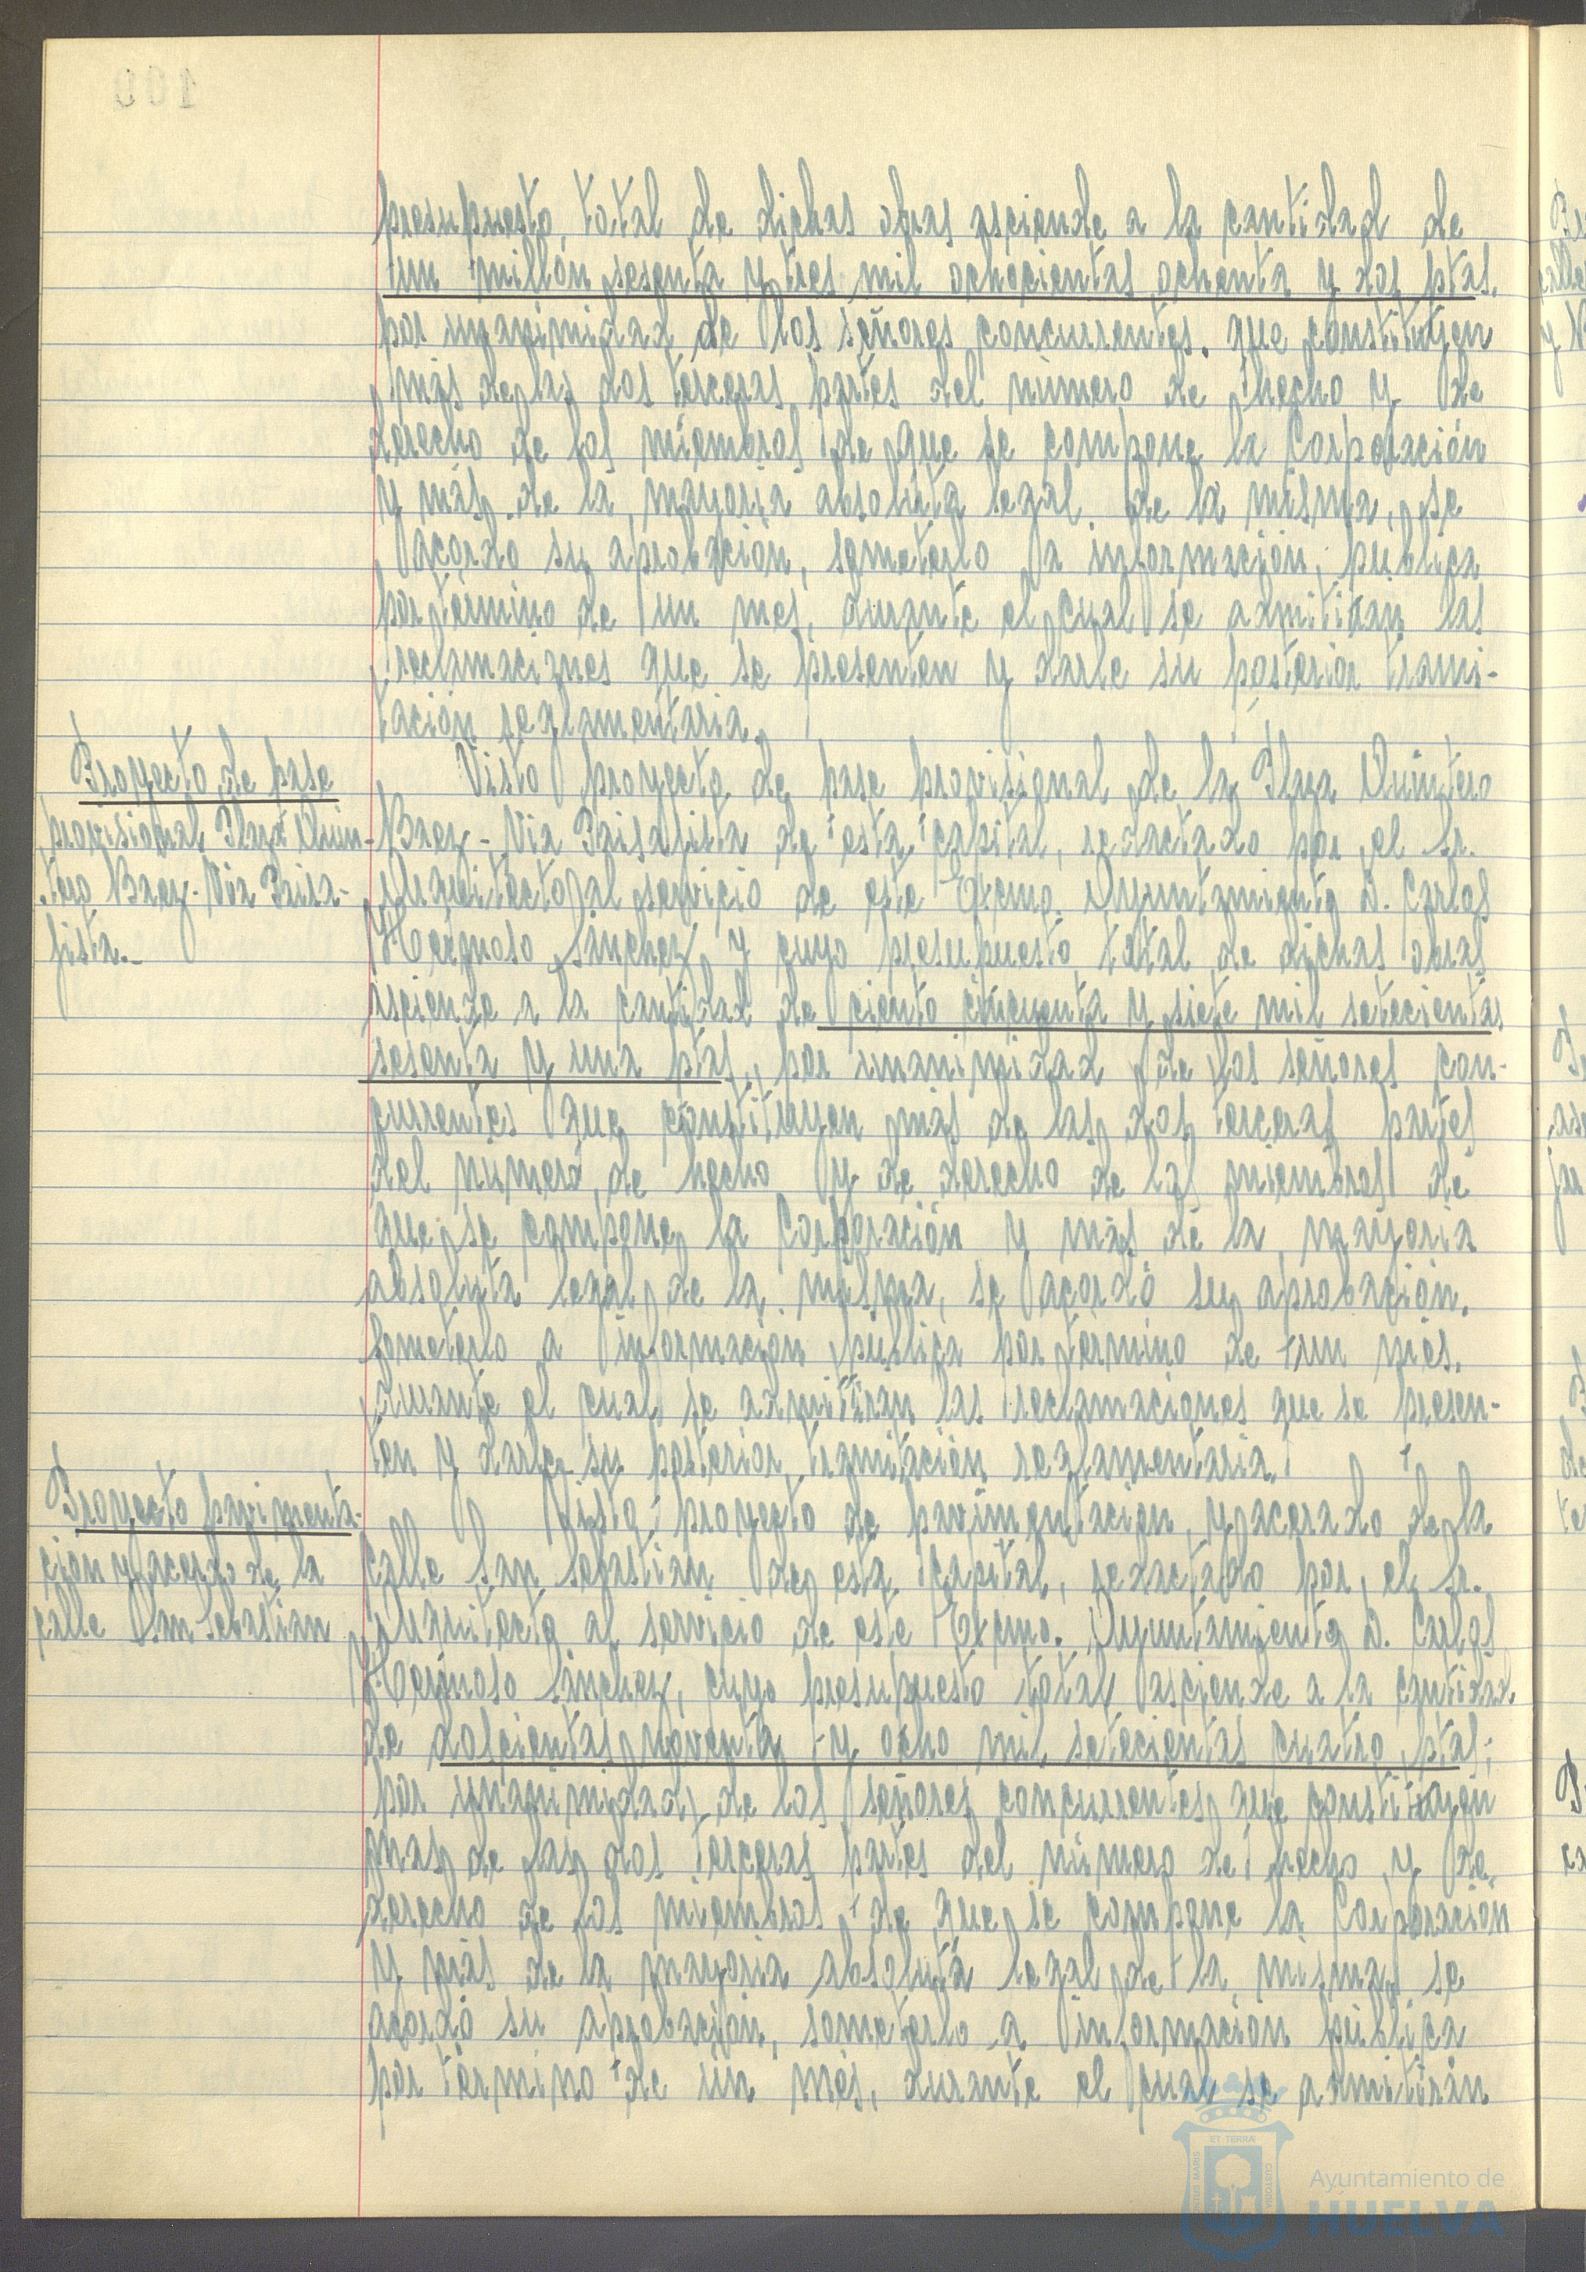 100
presupuesto total de dichas obras asciende a la cantidad de
un millón sesenta y tres mil ochocientas ochenta y dos ptas.
por unanimidad de los señores concurrentes. que constituyen
más de las dos terceras partes del número de hecho y de
derecho de los miembros de que se compone la Corporación
y más de la mayoria absoluta legal de la misma, se
acordo su aprobación, someterlo a información, pública
por término de un mes, durante el cual se admitiran las
reclamaciones que se presenten y darle su posterior trami-
tación reglamentaria.
Proyecto de pase
provisional Plaza Quin-
tero Baez - Via Paisa-
jista.-
Visto proyecto de pase provisional de la Plaza Quintero
Baez - Via Paisajista de esta capital, redactado por el Sr.
Arquitecto al servicio de este Excmo. Ayuntamiento D. Carlos
Hermoso Sánchez y cuyo presupuesto total de dichas obras
asciende a la cantidad de ciento cincuenta y siete mil setecientas
sesenta y una ptas., por unanimidad de los señores con-
currentes que constituyen más de las dos terceras partes
del numero de hecho y de derecho de los miembros de
que se compone la Corporación y más de la mayoria
absoluta legal de la misma, se acordó su aprobación.
Someterlo a información pública por término de un mes.
durante el cual se admitiran las reclamaciones que se presen-
ten y darle su posterior tramitación reglamentaria.
Proyecto pavimenta-
cion y acerado de la
calle San Sebastian
Visto proyecto de pavimentacion y acerado de la
calle San Sebastian de esta Capital, redactado por el Sr.
Arquitecto al servicio de este Excmo. Ayuntamiento D. Carlos
Hermoso Sánchez, cuyo presupuesto total asciende a la cantidad
de doscientas noventa y ocho mil setecientas cuatro ptas;
por unanimidad de los señores concurrentes que constituyen
mas de las dos terceras partes del número de hecho y de
derecho de los miembros de que se compone la Corporación
y más de la mayoria absoluta legal de la misma, se
acordó su aprobación, someterlo a información pública
por término de un mes, durante el cual se admitirán
ET TERRA
CUSTODIA
PORTUS MARIS
Ayuntamiento de
HUELVA